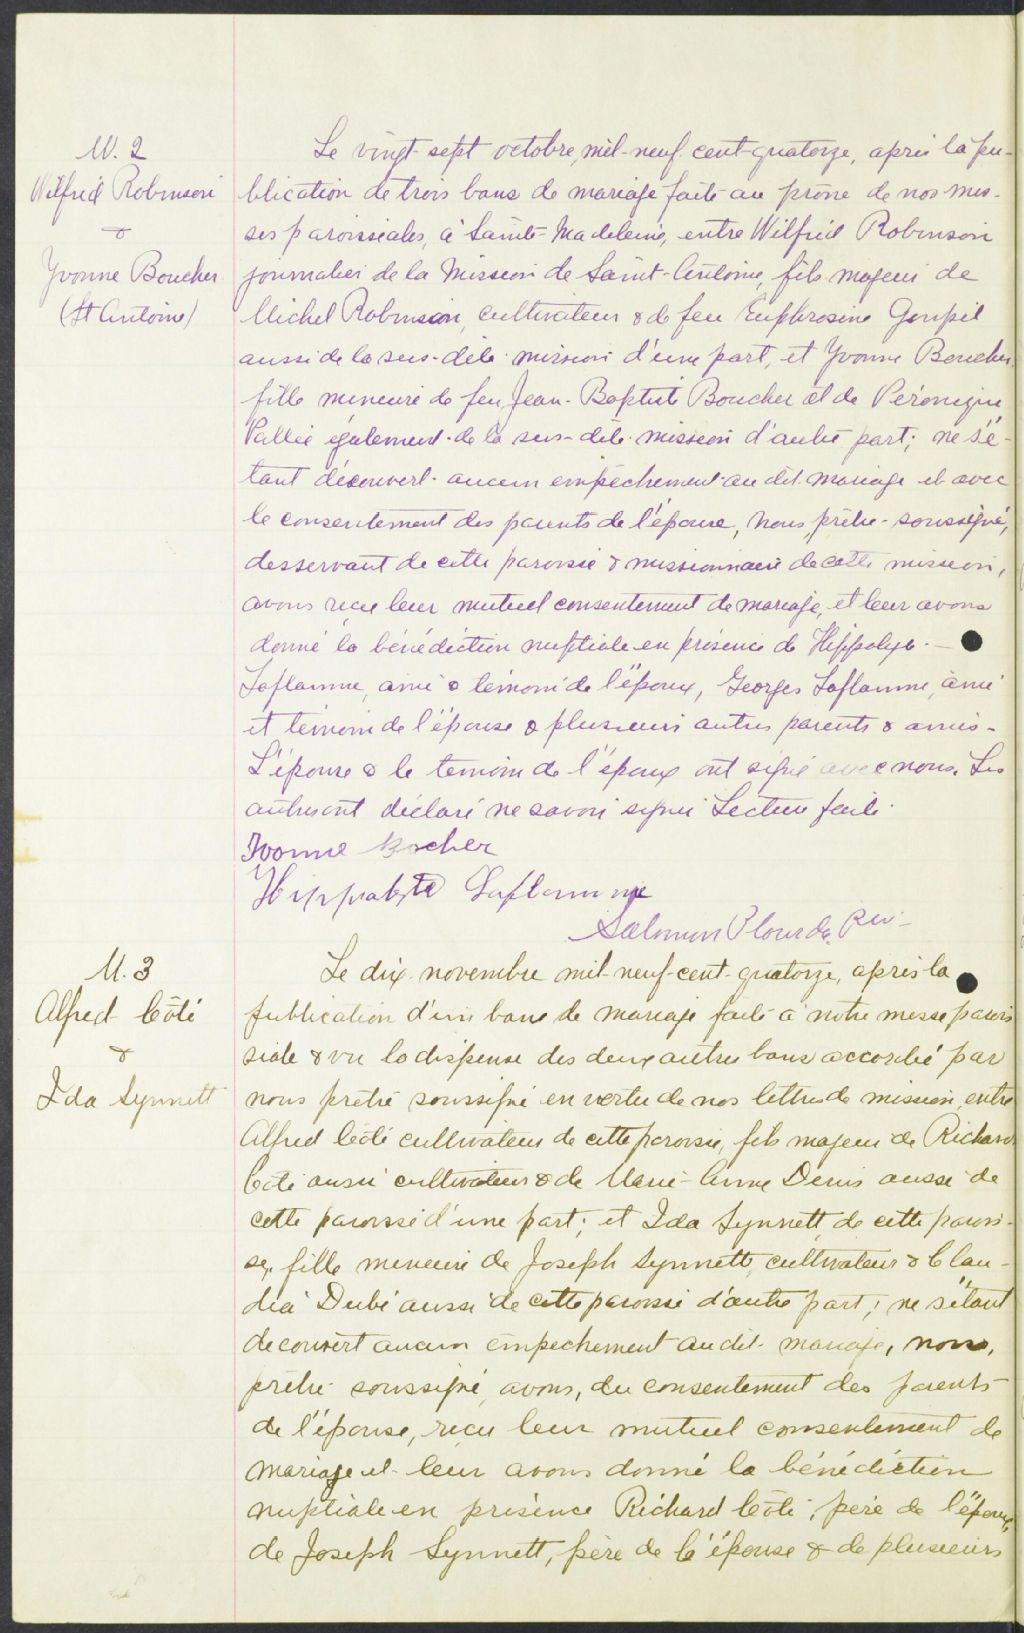 M. 2
Wilfrid Robinson
&
Yvonne Boucher
(St Antoine)
Le vingt-sept octobre, mil-neuf-cent-quatorze, après la pu-
blication de trois bans de mariage faite au prône de nos mes-
ses paroissiales, à Sainte-Madeleine, entre Wilfrid Robinson
journalier de la Mission de Saint-Antoine, fils majeur de
Michel Robinson, cultivateur & de feu Euphrosine Goupil
aussi de la sus-dite mission d'une part, et Yvonne Boucher,
fille mineure de feu Jean-Baptiste Boucher et de
également de la sus-dite mission d'autre part; ne s'é-
tant découvert aucun empêchement au dit mariage et avec
le consentement des parents de l'épouse, Nous, prêtre-soussigné,
desservant de cette paroisse & missionnaire de cette mission,
avons reçu leur mutuel consentement de mariage, et leur avons
donné la bénédiction nuptiale en présence de Hippolyte
Laflamme, ami & témoin de l'époux, Georges Laflamme, ami
et témoin de l'épouse & plusieurs autres parents & amis.
L'épouse & le temoin de l'époux ont signé avec nous. Les
autres ont déclaré ne savoir signer Lecture faite.
Yvonne Bocher
Hippolyte Laflamme
Salomon Plourde, Ptr.
M. 3
Alfred Côté
&
Ida Synnett
Le dix novembre mil-neuf-cent-quatorze, après la
publication d'un banc de mariage faite à notre messe parois
siale & vu la dispense des deux autres bans accordée par
nous prêtre soussigné en vertu de nos lettres de mission, entre
Alfred Côté cultivateur de cette paroisse, fils majeur de Richard
Côté aussi cultivateur & de Marie-Anne Denis aussi de
cette paroisse d'une part; et Ida Synnett, de cette parois-
se, fille mineure de Joseph Synnett, cultivateur & Clau-
dia Dubé aussi de cette paroisse d'autre part; ne s'étant
decouvert aucun empêchement au dit mariage, nous,
prêtre soussigné, avons, du consentement des parents
de l'épouse, reçu leur mutuel consentement de
mariage et leur avons donné la bénédiction
nuptiale en présence Richard Côté, père de l'époux,
de Joseph Synnett, père de l'épouse & de plusieurs